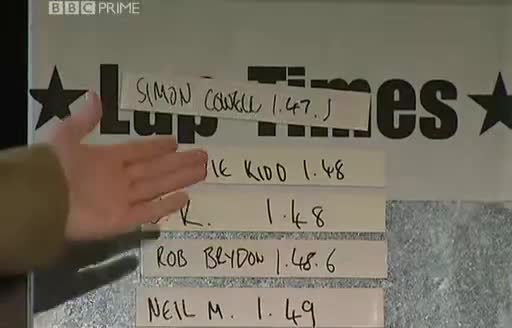 BBC PRIME
Lap Times
SIMON COWELL 1.47.1
KIDD 1.48
J.K. 1.48
ROB BRYDON 1.48.6
NEIL M. 1.49